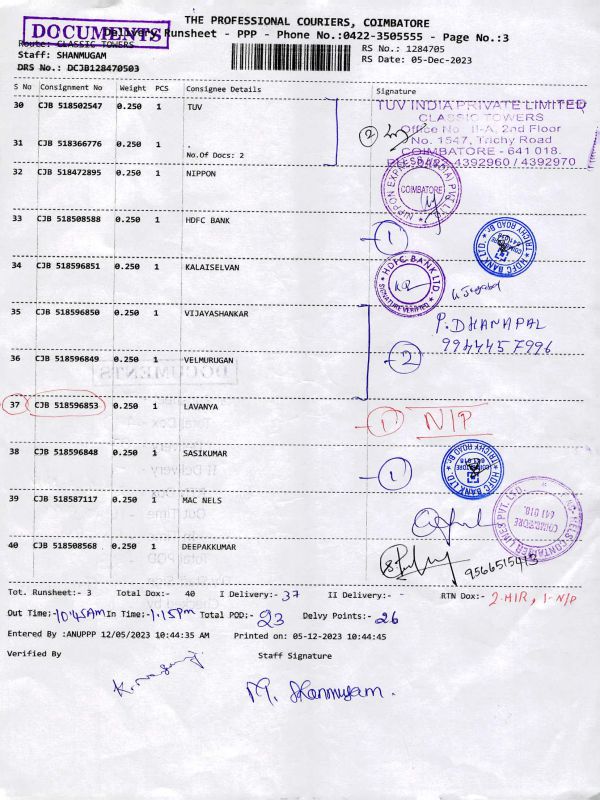 THE PROFESSIONAL COURIERS, COIMBATORE
DOCUMENTS
Delivery Runsheet - PPP - Phone No.:0422-3505555 - Page No.:3
Route: CLASSIC TOWERS
RS No.: 1284705
Staff: SHANMUGAM
RS Date: 05-Dec-2023
DRS No.: DCJB128470503
S No Consignment No Weight PCS Consignee Details Signature
30 CJB 518502547 0.250 1 TUV
TUV INDIA PRIVATE LIMITED
CLASSIC TOWERS
Office No. II-A, 2nd Floor
No. 1547, Trichy Road
COIMBATORE - 641 018.
0422-4392960 / 4392970
2
31 CJB 518366776 0.250 1 .
No.Of Docs: 2
32 CJB 518472895 0.250 1 NIPPON
NIPPON EXPRESS (INDIA) PVT.
COIMBATORE
33 CJB 518508588 0.250 1 HDFC BANK
1
HDFC BANK LTD. TRICHY ROAD Br.
34 CJB 518596851 0.250 1 KALAISELVAN
HDFC BANK LTD.
SIGNATURE VERIFIED
35 CJB 518596850 0.250 1 VIJAYASHANKAR
P. DHANAPAL
9944457996
36 CJB 518596849 0.250 1 VELMURUGAN
2
37 CJB 518596853 0.250 1 LAVANYA
1 N/P
38 CJB 518596848 0.250 1 SASIKUMAR
1
HDFC BANK LTD. TRICHY ROAD Br.
39 CJB 518587117 0.250 1 MAC NELS
NELS CONTAINER LINES PVT. LTD.
COIMBATORE
641 018.
40 CJB 518508568 0.250 1 DEEPAKKUMAR
9566515413
Tot. Runsheet:- 3 Total Dox:- 40 I Delivery:- 37 II Delivery:- - RTN Dox:- 2-HIR, 1-N/P
Out Time:- 10:45AM In Time:- 1.15pm Total POD:- 23 Delvy Points:- 26
Entered By :ANUPPP 12/05/2023 10:44:35 AM Printed on: 05-12-2023 10:44:45
Verified By Staff Signature
M. Shanmugam.